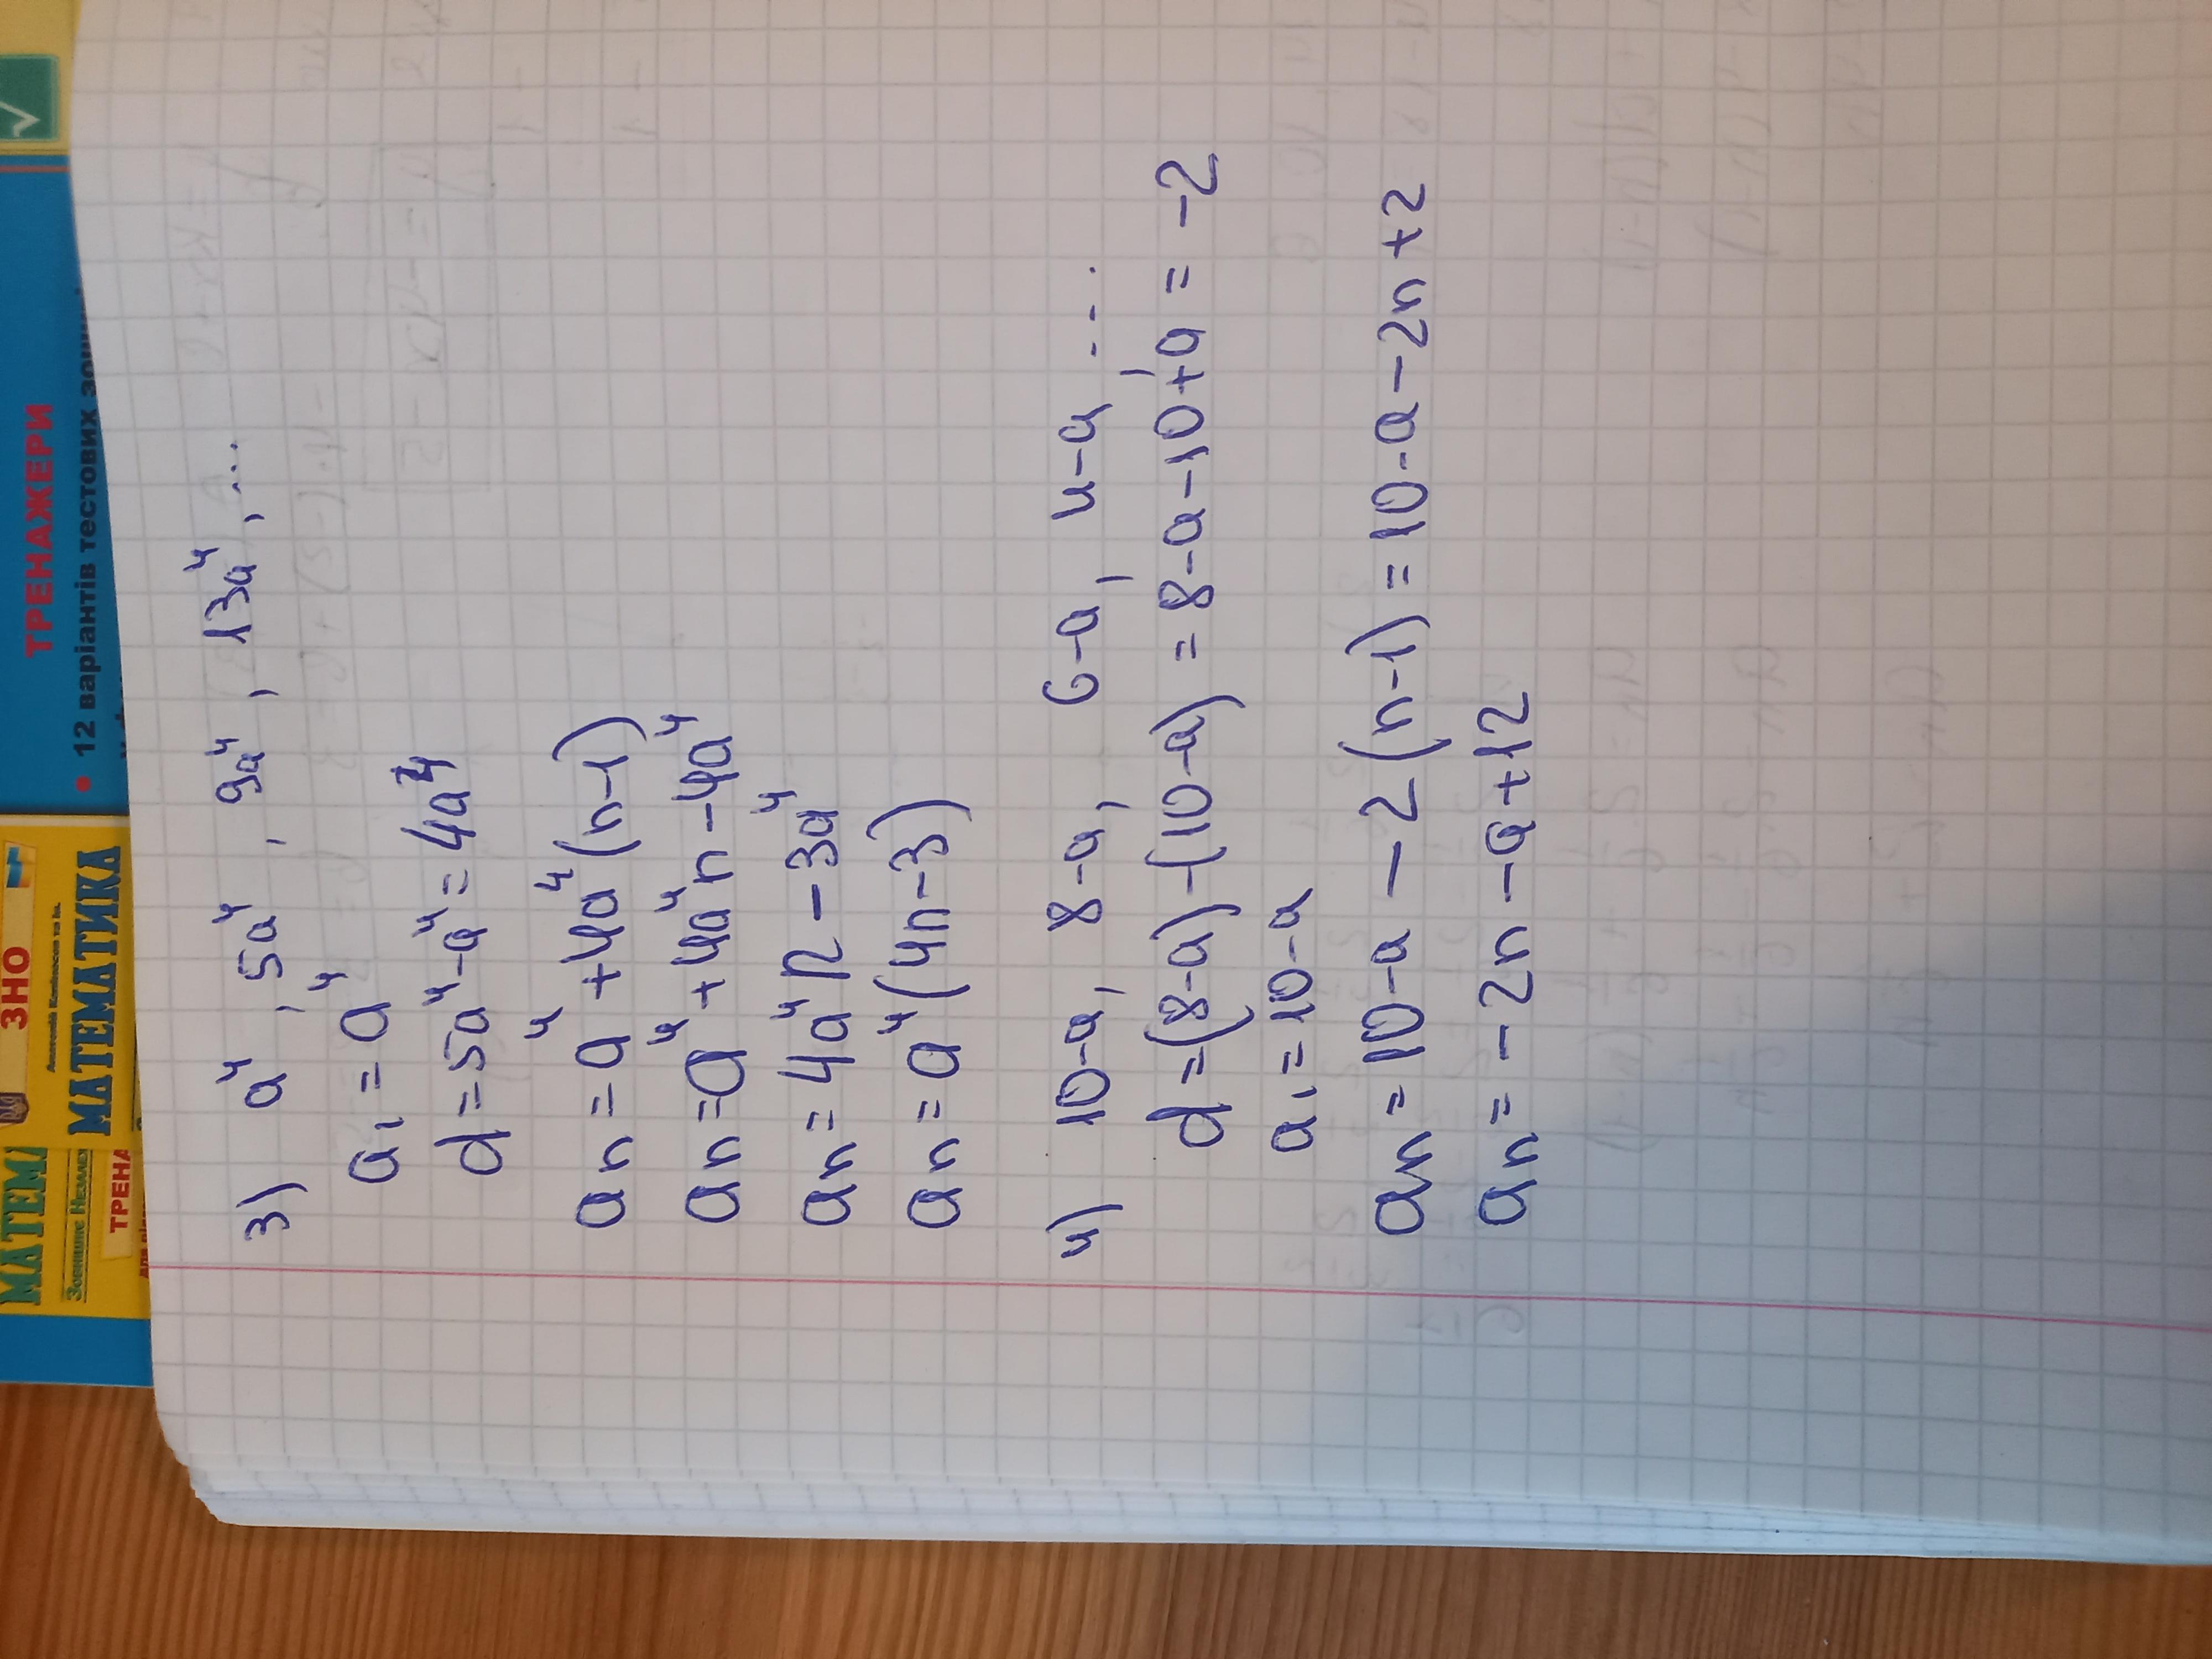 ЗНО
МАТЕМАТИКА
МАТЕМ
ТРЕНАЖЕРИ
• 12 варіантів тестових
ТРЕНА
3) a⁴, 5a⁴, 9a⁴, 13a⁴, ...
a₁ = a⁴
d = 5a⁴ - a⁴ = 4a⁴
an = a⁴ + 4a⁴(n-1)
an = a⁴ + 4a⁴n - 4a⁴
an = 4a⁴n - 3a⁴
an = a⁴(4n-3)
4) 10-a, 8-a, 6-a, 4-a, ...
d = (8-a)-(10-a) = 8-a-10+a = -2
a₁ = 10-a
an = 10-a - 2(n-1) = 10-a-2n+2
an = -2n-a+12